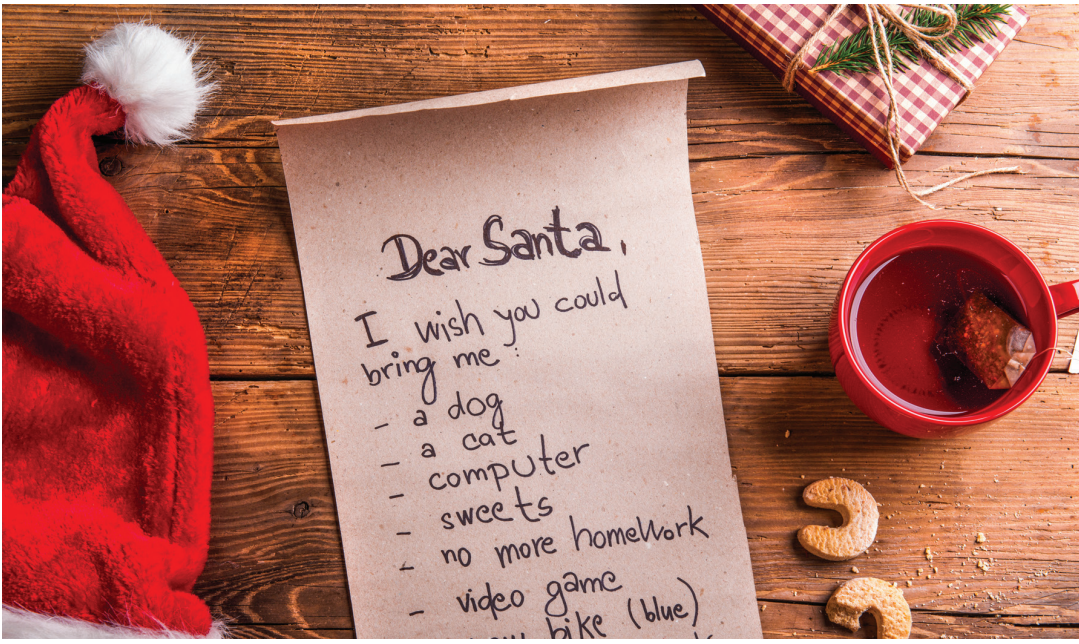 Dear Santa,
I wish you could
bring me :
- a dog
- a cat
- computer
- sweets
- no more homework
- video game
bike (blue)